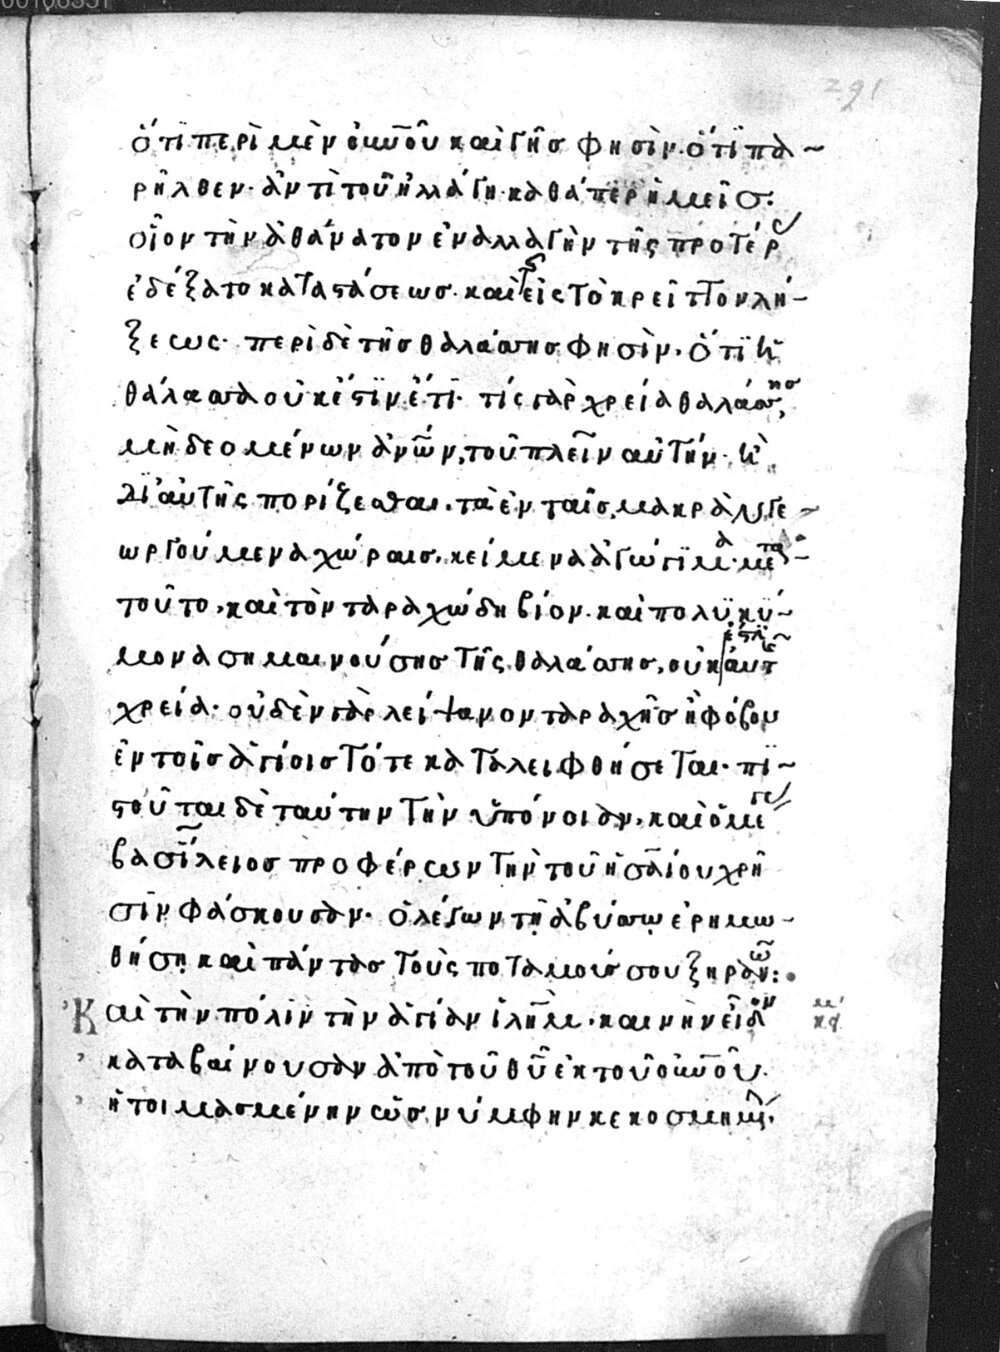 291
ὅτϊ περὶ μὲν οὐ̅ν̅ο̅ῦ καὶ γῆσ φησὶν· ὅτϊ πα~
ρῆλθεν· ἀντὶ τοῦ ἠλλάγη· καθάπερ ἡμεῖσ:
οἷον τὴν ἀθάνατον ἐναλλαγὴν τῆς προτέρ
ἐδέξατο καταστάσεωσ· καὶ τς εἰς τὸ κρεῖττον λή-
ξεως· περὶ δὲ τῆσ θαλάσσησ φησὶν· ὅτϊ ἡ
θάλασσα οὐκ ἔστϊν ἔτϊ· τίς γὰρ χρεία θαλάσσησ,
μὴ δεομένων ἀν̅ω̅ν, τοῦ πλεῖν αὐτήν· ἢ
δϊ αὐτῆς πορίζεσθαι· τὰ ἐν ταῖσ μακρὰν γε~
ωργούμενα χώραισ· κείμενα ἀγώγϊμα· μετὰ-
τοῦτο, καὶ τὸν ταραχώδη βίον· καὶ πολϋκύ-
μονα σημαινούσησ τῆς θαλάσσησ, οὐκ ἔσται αὐτῆς
χρεία· οὐδὲν γὰρ λείψανον ταραχῆσ ἢ φόβου
ἐν τοῖσ ἁγίοισ τότε καταλειφθήσεται· πϊ~
στοῦται δὲ ταύτην τὴν ὑπόνοιαν, καὶ ὁ μέγας
βασίλειοσ προφέρων τὴν τοῦ ἡσαΐου χρῆ
σϊν φάσκουσαν· ὁ λέγων τῇ ἀβύσσῳ ἐρημω-
θήσῃ καὶ πάντασ τοὺς ποταμούσ σου ξηρανῶ:
Καὶ τὴν πόλϊν τὴν ἁγίαν ἰλη̅μ· καινὴν εἶδον
καταβαίνουσαν ἀπὸ τοῦ θ̅υ̅ ἐκ τοῦ οὐ̅ν̅ο̅ῦ·
ἡτοιμασμένην ὡσ νύμφην κεκοσμημ·